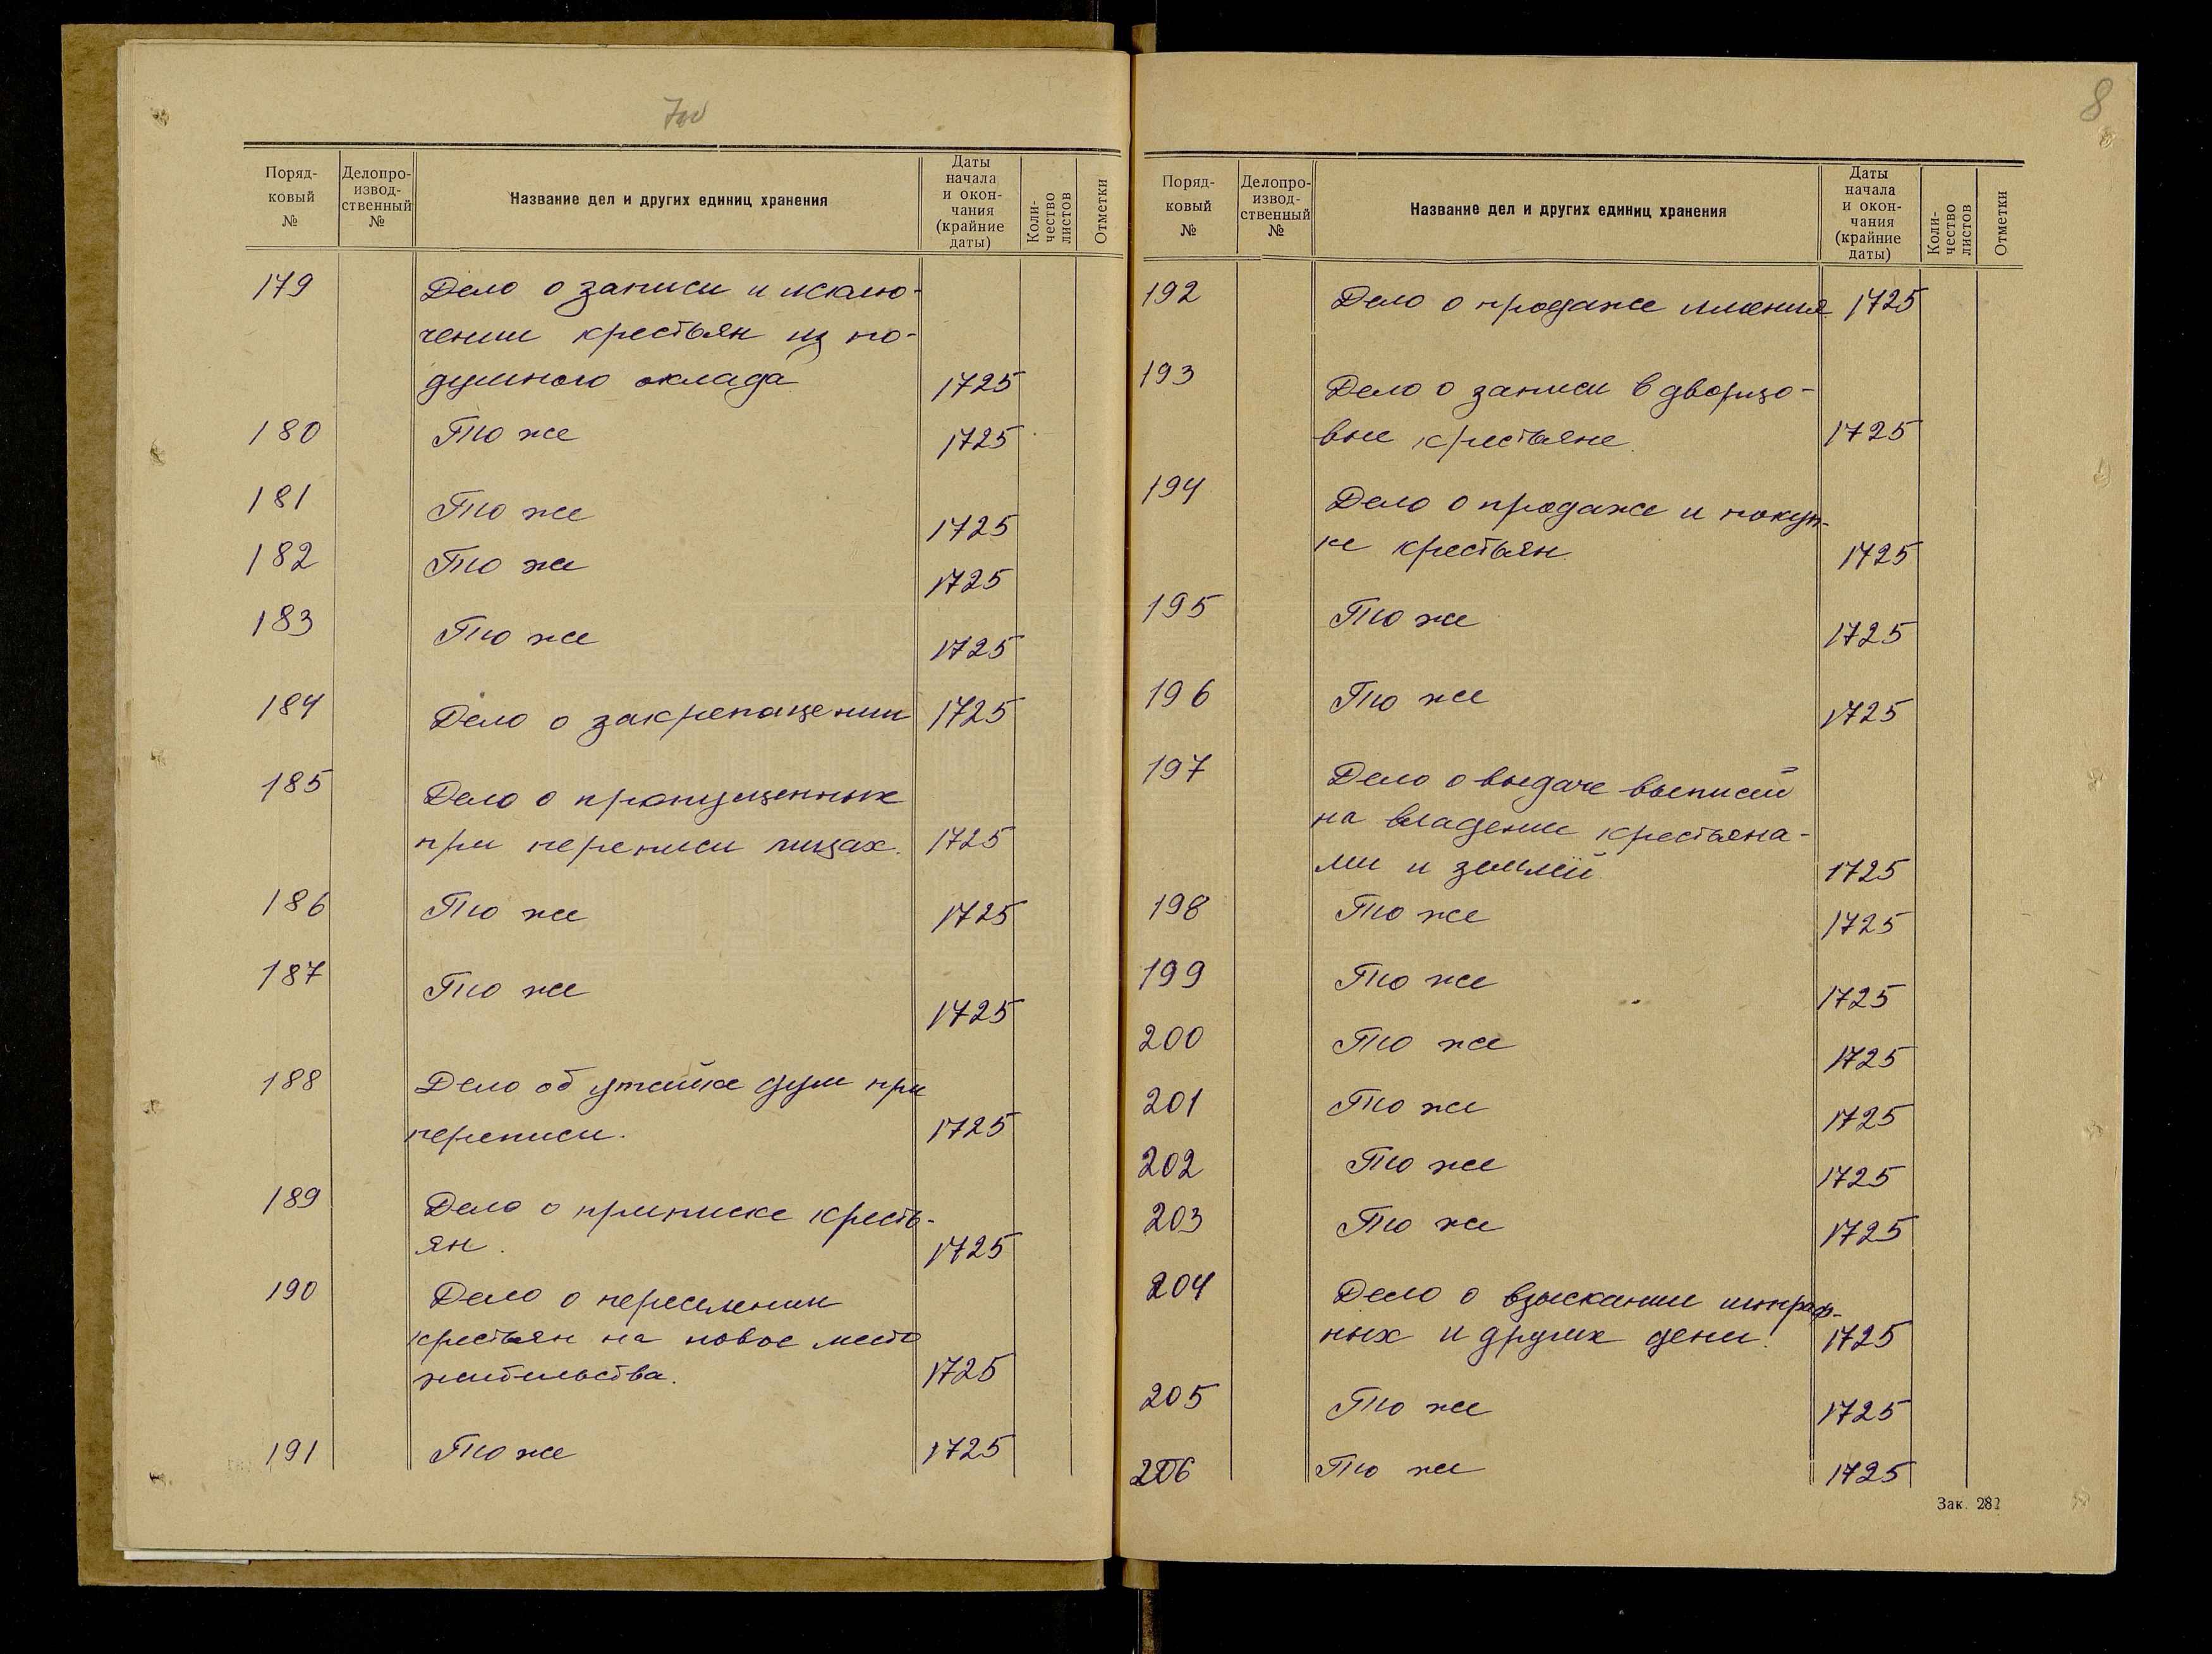 7об
Поряд-
ковый
№
Делопро-
извод-
ственный
№
Название дел и других единиц хранения
Даты
начала
и окон-
чания
(крайние
даты)
Коли-
чество
листов
Отметки
179 Дело о записи и исклю-
чении крестьян из по-
душного оклада 1725
180 То же 1725
181 То же 1725
182 То же 1725
183 То же 1725
184 Дело о закрепощении 1725
185 Дело о пропущенных
при переписи лицах. 1725
186 То же 1725
187 То же 1725
188 Дело об утайке душ при
переписи. 1725
189 Дело о приписке кресть-
ян. 1725
190 Дело о переселении
крестьян на новое место
жительства. 1725
191 То же 1725
8
Поряд-
ковый
№
Делопро-
извод-
ственный
№
Название дел и других единиц хранения
Даты
начала
и окон-
чания
(крайние
даты)
Коли-
чество
листов
Отметки
192 Дело о продаже имения 1725
193 Дело о записи в дворцо-
вые крестьяне. 1725
194 Дело о продаже и покуп-
ке крестьян. 1725
195 То же 1725
196 То же 1725
197 Дело о выдаче выписей
на владение крестьяна-
ми и землей 1725
198 То же 1725
199 То же 1725
200 То же 1725
201 То же 1725
202 То же 1725
203 То же 1725
204 Дело о взыскании штраф-
ных и других денег. 1725
205 То же 1725
206 То же 1725
Зак. 282